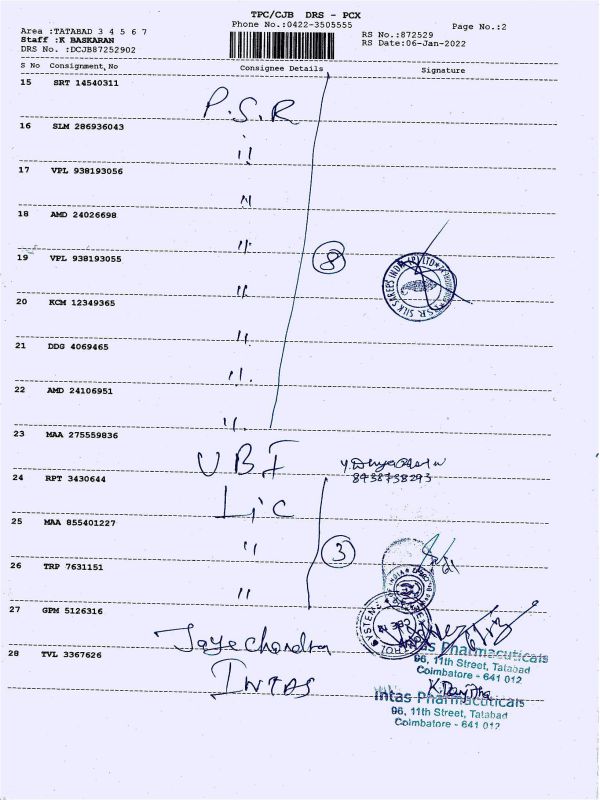 TPC/CJB DRS - PCX
Phone No.:0422-3505555
Page No.:2
Area :TATABAD 3 4 5 6 7
Staff :K BASKARAN
DRS No. :DCJB87252902
RS No.:872529
RS Date:06-Jan-2022
S No Consignment,No Consignee Details Signature
15 SRT 14540311
P.S.R
16 SLM 286936043
"
17 VPL 938193056
"
18 AMD 24026698
"
19 VPL 938193055
8
"
20 KCM 12349365
"
21 DDG 4069465
"
22 AMD 24106951
"
23 MAA 275559836
UBI
24 RPT 3430644
Lic
25 MAA 855401227
"
3
26 TRP 7631151
"
27 GPM 5126316
Jaya Chandra
28 TVL 3367626
INTAS
SILK SAREES INDIA (P) LTD
Intas Pharmaceuticals
96, 11th Street, Tatabad
Coimbatore - 641 012
Intas Pharmaceuticals
96, 11th Street, Tatabad
Coimbatore - 641 012